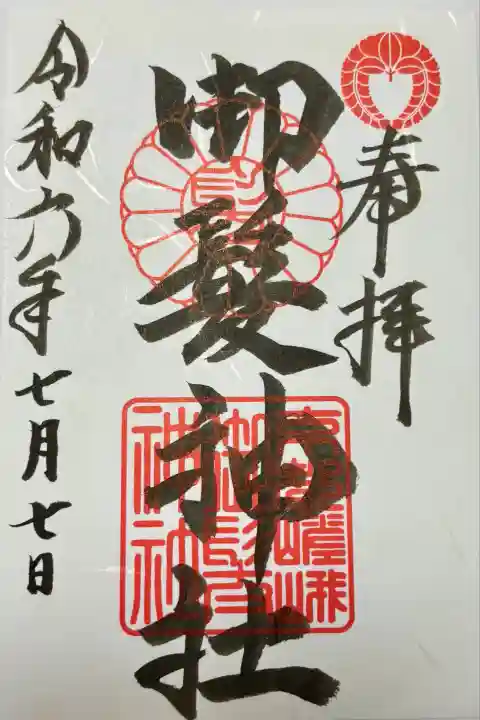 奉拝
御髪神社
京都嵯峨
御髪
神社
令和六年七月七日